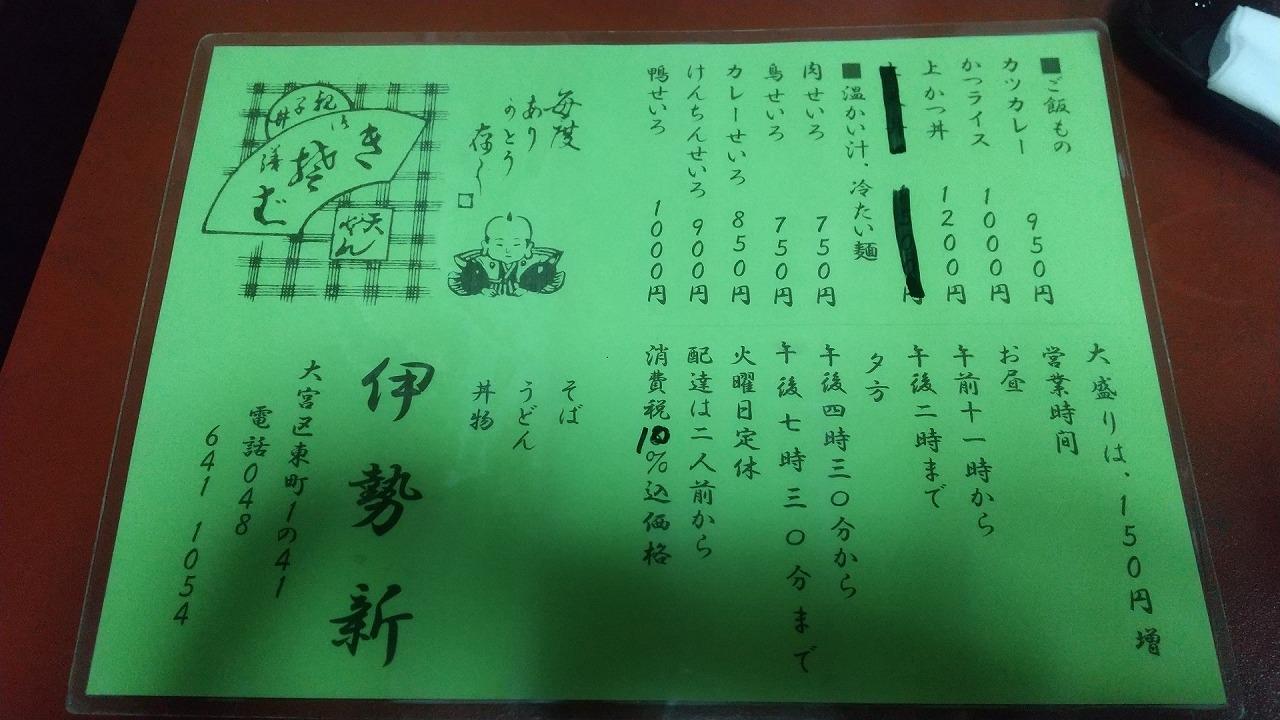 ■ご飯もの
カツカレー 950円
かつライス 1000円
上かつ丼 1200円
円
■温かい汁、冷たい麺
肉せいろ 750円
鳥せいろ 750円
カレーせいろ 850円
けんちんせいろ 900円
鴨せいろ 1000円
毎度
あり
がとう
存じ〼
大盛りは、150円増
営業時間
お昼
午前十一時から
午後二時まで
夕方
午後四時三〇分から
午後七時三〇分まで
火曜日定休
配達は二人前から
消費税10%込価格
そば
うどん
丼物
伊勢新
大宮区東町1の41
電話048
641 1054
親子
丼
天
ざる